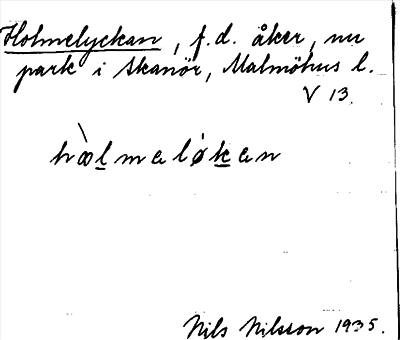 Holmelyckan, f.d. åker, nu
park i Skanör, Malmöhus l.
V 13.
hòlmeløken
Nils Nilsson 1935.